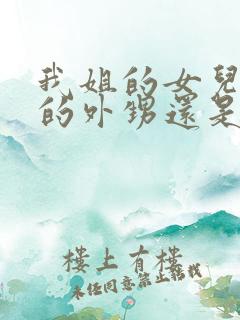 我姐的女兒
的外甥還是
樓上有樓
未經同意禁止轉載